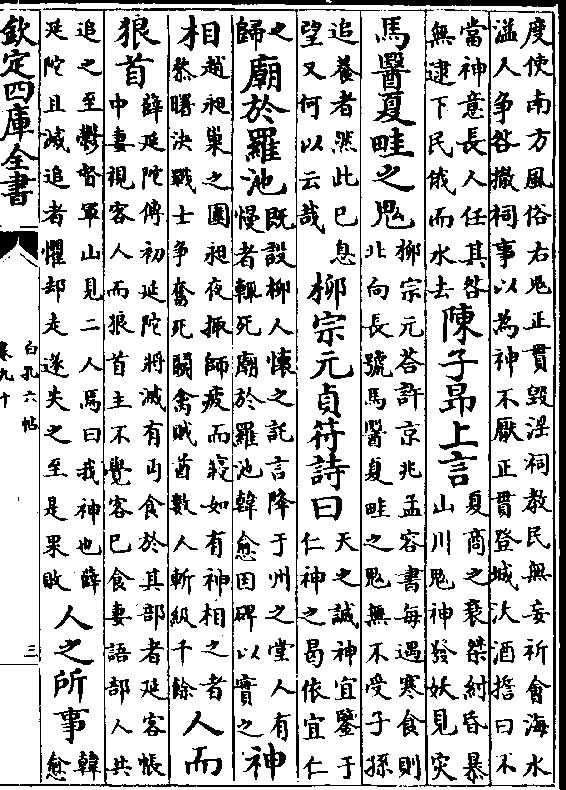 度使南方風俗右鬼正貫毀淫祠教民無妄祈會海水
溢人爭咎撤祠事以為神不厭正貫登城沃酒擔曰不
當神意長人任其咎
無逮下民俄而水去
陳子昻上言
夏商之衰桀紂昏暴
山川鬼神發妖見災
馬醫夏畦之鬼
柳宗元荅許京兆孟容書每遇寒食則
北向長號馬醫夏畦之鬼無不受子孫
追養者然此已息
望又何以云哉
柳宗元貞符詩曰
天之誠神宜鑒于
仁神之曷依宜仁
之
歸
廟於羅池
既設柳人懷之託言降于州之堂人有
慢者輒死廟於羅池韓愈因碑以實之
神
相
趙昶巢之圍昶夜師疲而寢如有神相之者
黎曙決戰士爭奮死鬭禽賊酋數人斬級千餘
人而
狼首
薛延陀傳初延陀將滅有丐食於其部者延客帳
中妻視客人而狼首主不覺客已食妻語部人共
追之至鬱督軍山見二人焉曰我神也薛
延陀且滅追者懼却走遂失之至是果敗
人之所事
韓
愈
欽定四庫全書
白孔六帖
卷九十
三